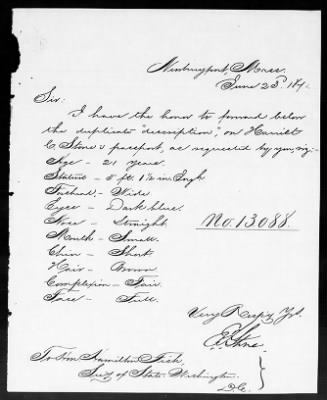 Newburyport, Mass.
June 23d 187
Sir:
I have the honor to forward below
the duplicate "description", on Harriet
C Stone's passport, as requested by you, viz:
Age - 21 years.
Stature - 5 ft. 1½ in. Engh
Forehead - Wide
Eyes - Dark blue.
Nose - Straight
No. 13088.
Mouth - Small.
Chin - Short
Hair - Brown
Complexion - Fair.
Face - Full.
Very Respy Yrs.
To Hon Hamilton Fish
Secy of State Washington
D.C.